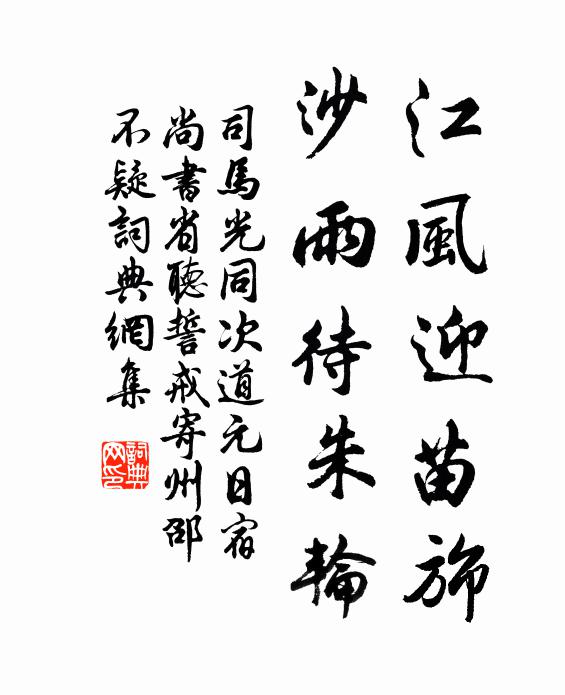 江風迎苗旆
沙雨待朱輪
司馬光同次道元日宿
尚書省聽誓戒寄州邵
不疑詞典網集
詞典網印